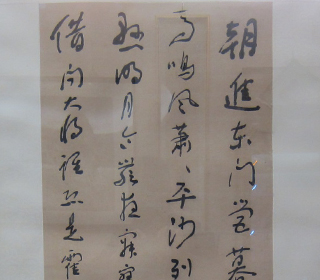 朝進东门营暮
马鸣风萧〻平沙列
悬明月令嚴夜寂寥
借问大将谁恐是霍